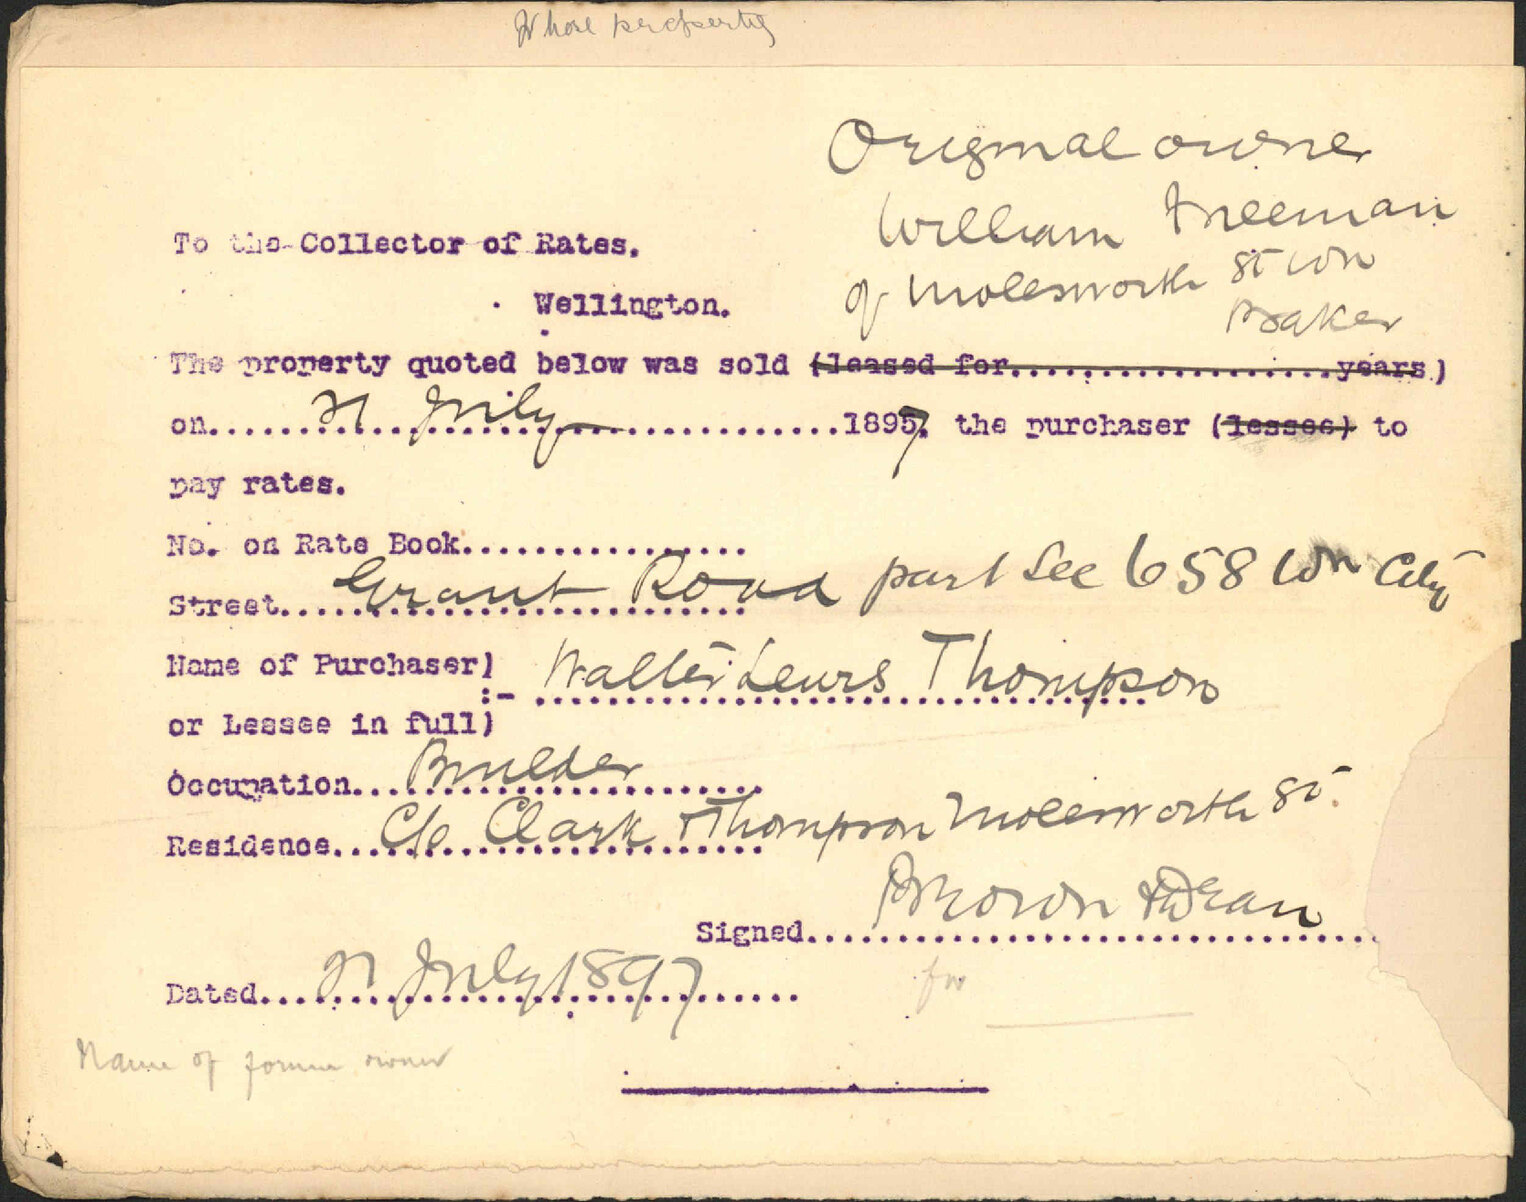 Whose property
Original owner
William Freeman
of Molesworth St Wn
Baker
To the Collector of Rates.
Wellington.
The property quoted below was sold (leased for....................years)
on.... July ....1897. the purchaser (lessee) to
pay rates.
No. on Rate Book................
Street.... Grant Road part Sec 658 Wn City
Name of Purchaser)
:- Walter Lewis Thompson
or Lessee in full)
Occupation.... Builder
Residence.... C/o Clark & Thompson Molesworth St.
Signed.... Brown & Dean
Dated.... July 1897
for
Name of former owner